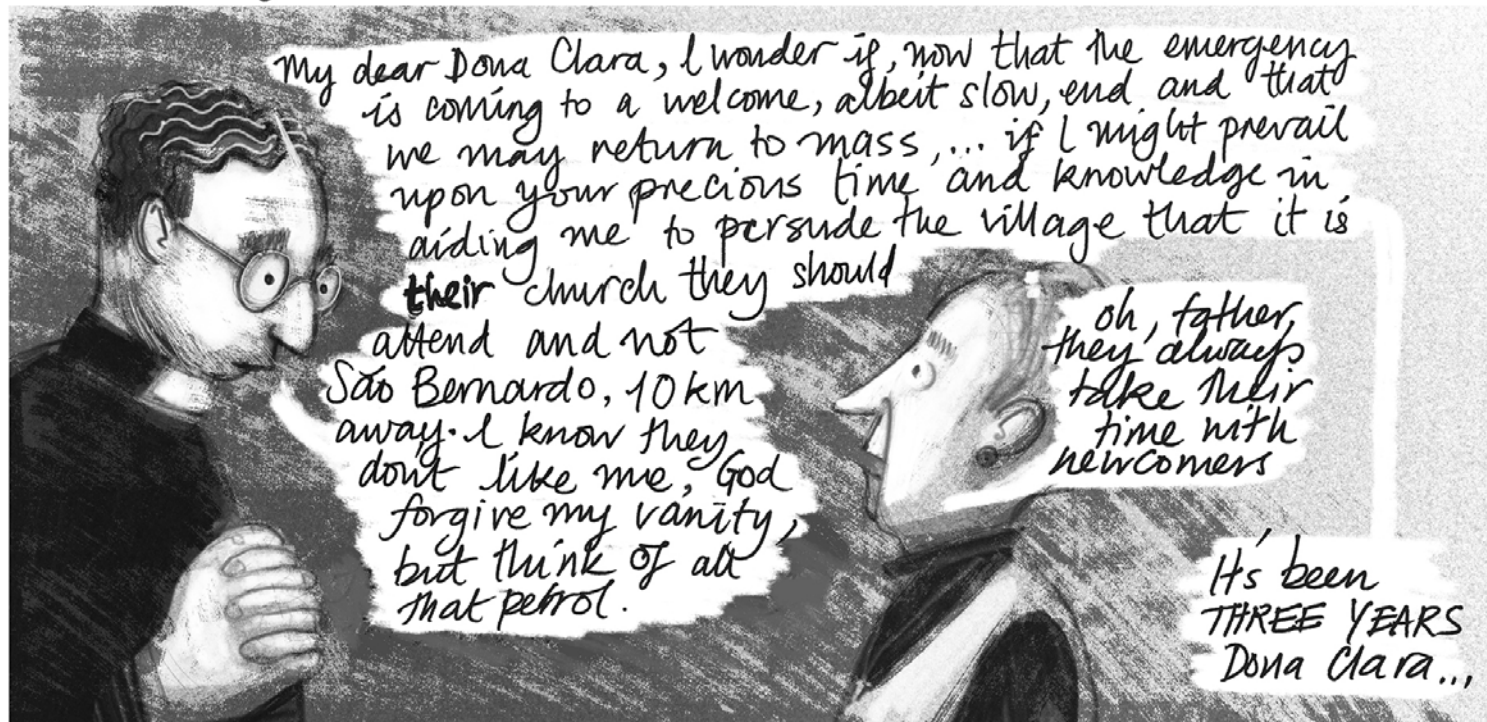 My dear Dona Clara, I wonder if, now that the emergency
is coming to a welcome, albeit slow, end and that
we may return to mass,... if I might prevail
upon your precious time and knowledge in
aiding me to persude the village that it is
their church they should
attend and not
São Bernardo, 10 km
away. I know they
dont like me, God
forgive my vanity,
but think of all
that petrol.
oh, father,
they always
take their
time with
newcomers
It's been
THREE YEARS
Dona Clara...